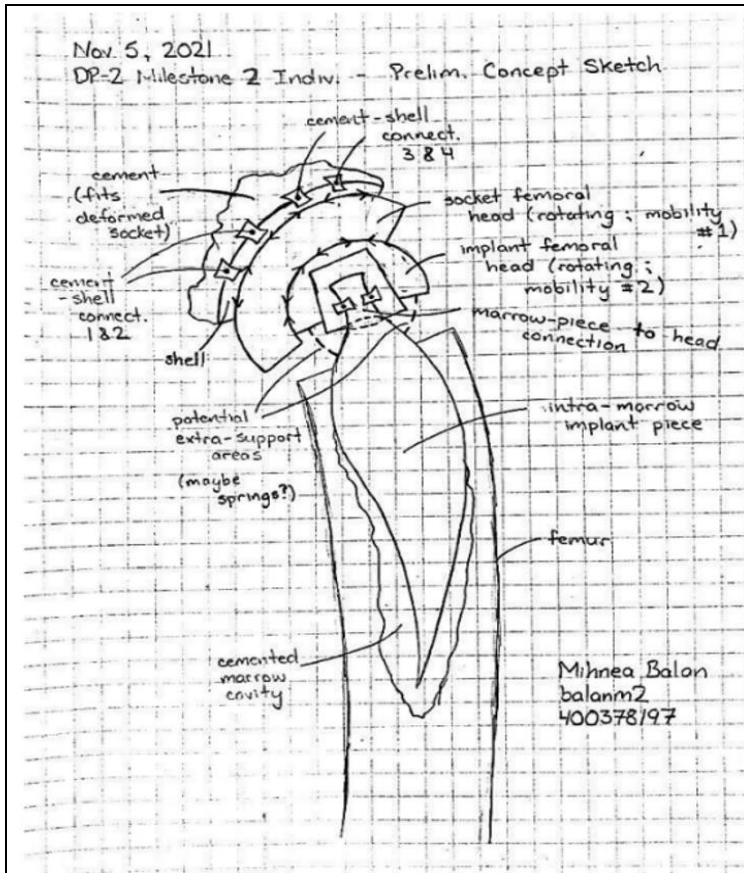 Nov. 5, 2021
DP-2 Milestone 2 Indiv. - Prelim. Concept Sketch
cement-shell
connect.
3 & 4
cement
(fits
deformed
socket)
socket femoral
head (rotating; mobility
#1)
implant femoral
head (rotating;
mobility #2)
cement
-shell
connect.
1 & 2
marrow-piece to head
connection
shell
potential
extra-support
areas
(maybe
springs?)
intra-marrow
implant piece
femur
cemented
marrow
cavity
Mihnea Balan
balanm2
400378197